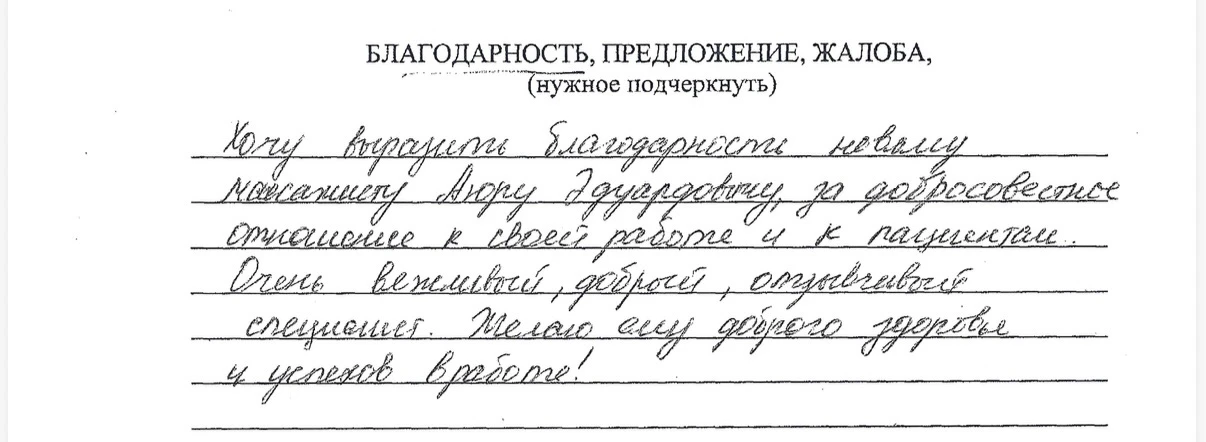 БЛАГОДАРНОСТЬ, ПРЕДЛОЖЕНИЕ, ЖАЛОБА,
(нужное подчеркнуть)
Хочу выразить благодарность новому
массажисту Аюру Эдуардовичу, за добросовестное
отношение к своей работе и к пациентам.
Очень вежливый, добрый, отзывчивый
специалист. Желаю ему доброго здоровья
и успехов в работе!